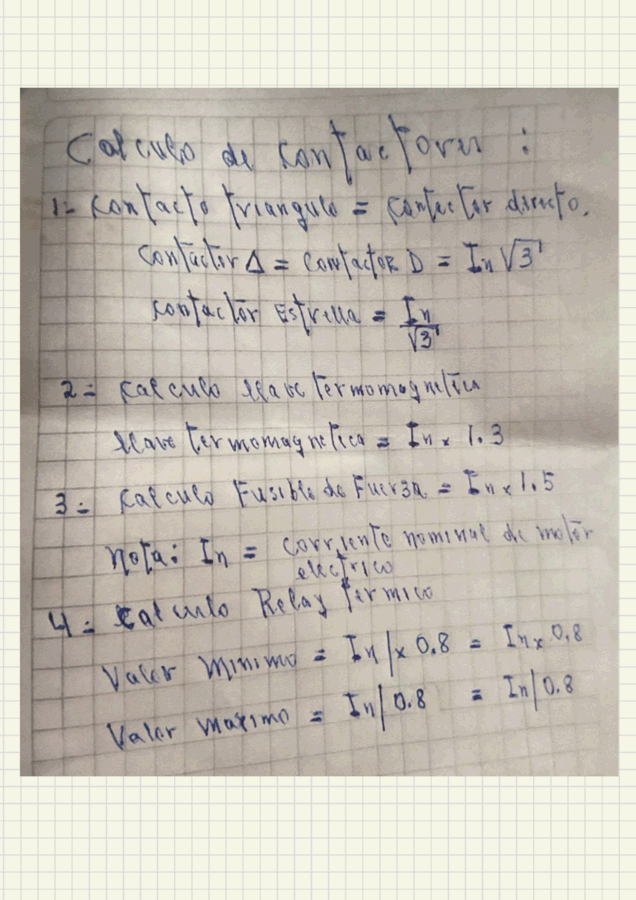 Calculo de Kontactores :
1- Kontacto triangulo = Kontactor directo.
Contactor Δ = Contactor D = In √3
Kontactor Estrella = In/√3
2= Kalculo llave termomagnetica
llave termomagnetica = In x 1.3
3= Kalculo Fusible de Fuerza = In x 1.5
Nota: In = corriente nominal de motor
electrico
4= Calculo Relay termico
Valor Minimo = In/x 0.8 = In x 0.8
Valor maximo = In/0.8 = In/0.8